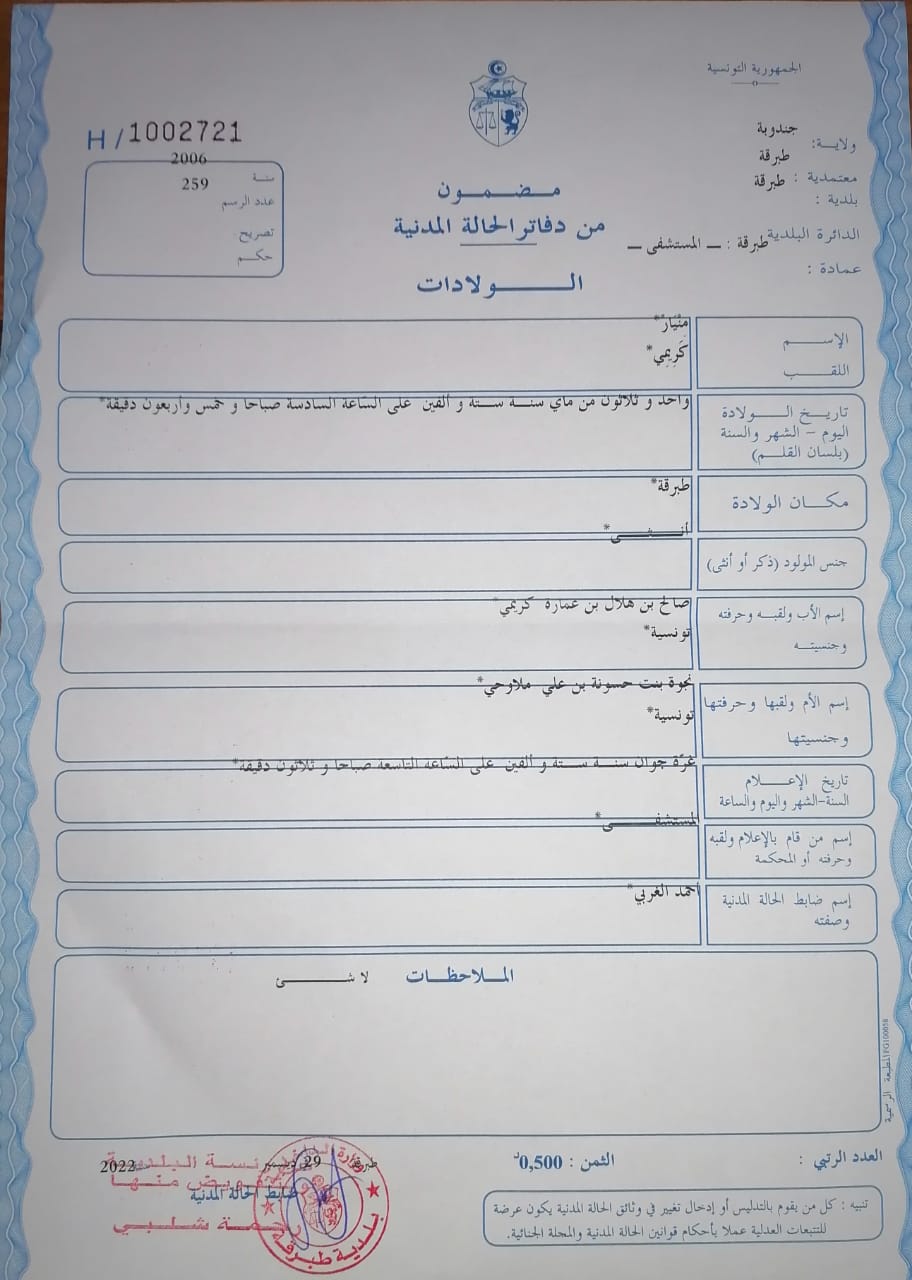 الجمهورية التونسية
ولاية: جندوبة
معتمدية : طبرقة
بلدية : طبرقة
الدائرة البلدية : طبرقة ـ المستشفى ـ
عمادة :
H/1002721
سنة 2006
عدد الرسم 259
تصريح
حكم
مضمون
من دفاتر الحالة المدنية
الولادات
الإسم
منْيَارْ*
اللقب
كَرِيمِي*
تاريخ الولادة
اليوم – الشهر والسنة
(بلسان القلم)
واحد و ثلاثون من ماي سنة ستة و ألفين على الساعة السادسة صباحا و خمس وأربعون دقيقة*
مكان الولادة
طبرقة*
جنس المولود (ذكر أو أنثى)
أنثى*
إسم الأب ولقبه وحرفته
وجنسيته
صالح بن هلال بن عمارة كريمي*
تونسية*
إسم الأم ولقبها وحرفتها
وجنسيتها
نجوة بنت حسونة بن علي ملاوحي*
تونسية*
تاريخ الإعلام
السنة-الشهر واليوم والساعة
غرّة جوان سنة ستة و ألفين على الساعة التاسعة صباحا و ثلاثون دقيقة*
إسم من قام بالإعلام ولقبه
وحرفته أو المحكمة
المستشفى*
إسم ضابط الحالة المدنية
وصفته
أحمد الغربي*
الملاحظات
لا شئ
المطبعة الرسمية
العدد الرتبي :
الثمن : 0,500د
طبرقة 29 ديسمبر 2022
ضابط الحالة المدنية
بلدية طبرقة
تنبيه : كل من يقوم بالتدليس أو إدخال تغيير في وثائق الحالة المدنية يكون عرضة
للتتبعات العدلية عملا بأحكام قوانين الحالة المدنية والمجلة الجنائية.